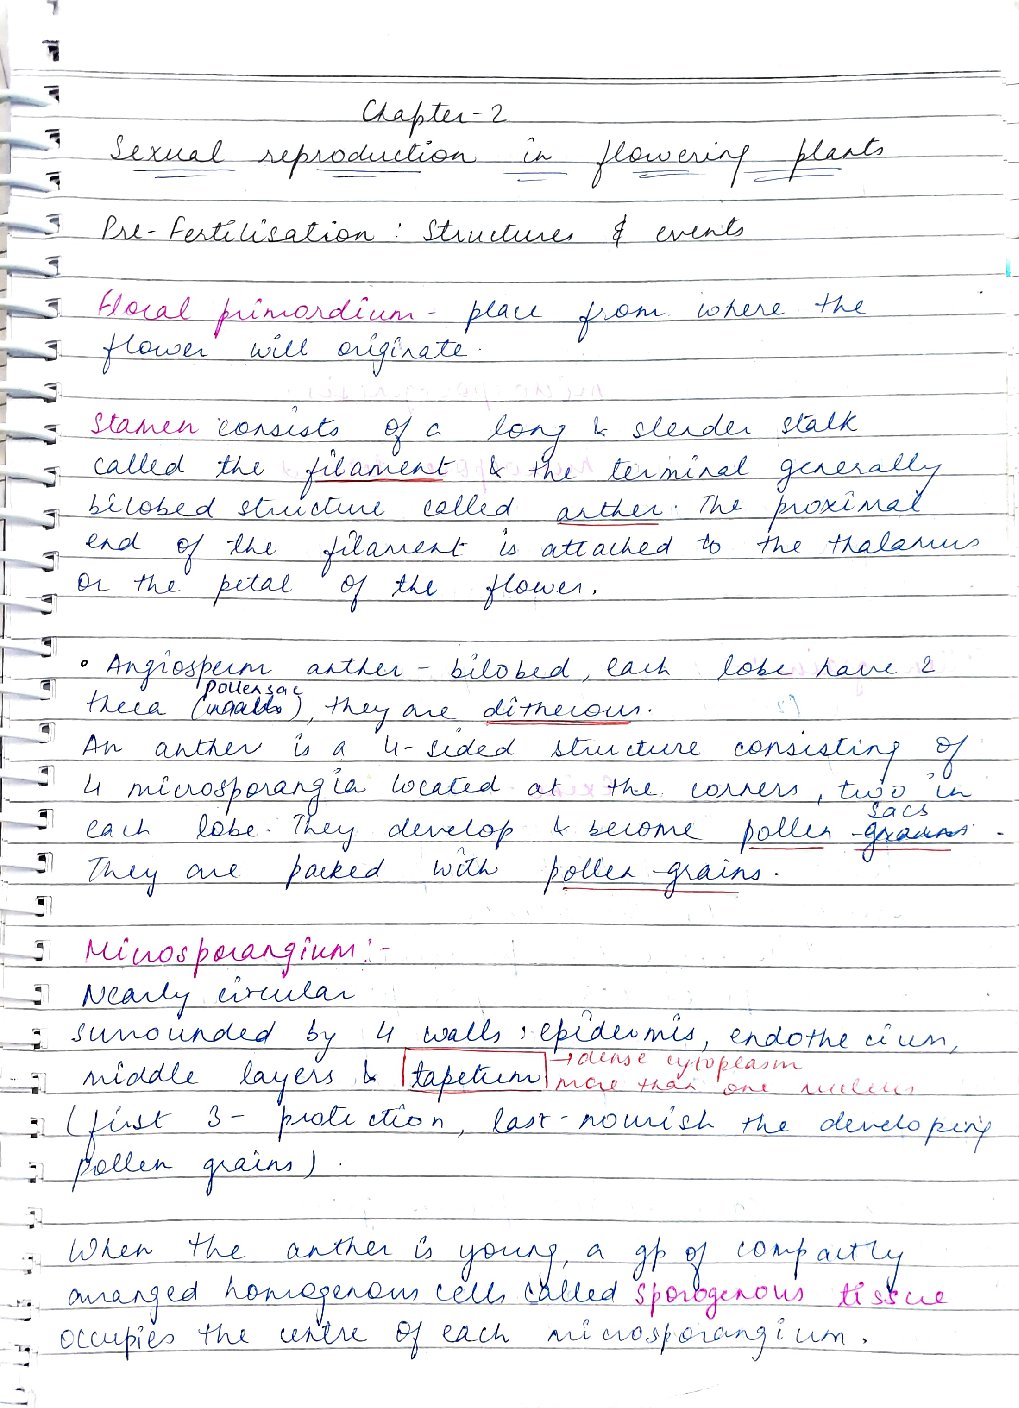 Chapter-2
Sexual reproduction in flowering plants
Pre-Fertilisation : Structures & events
Floral primordium - place from where the
flower will originate.
Stamen consists of a long & slender stalk
called the filament & the terminal generally
bilobed structure called anther. The proximal
end of the filament is attached to the thalamus
or the petal of the flower.
• Angiosperm anther - bilobed, each lobe have 2
pollensac
theca (), they are ditheous.
An anther is a 4-sided structure consisting of
4 microsporangia located at the corners, two in
sacs
each lobe. They develop & become pollen grains.
They are packed with pollen grains.
Microsporangium:-
Nearly circular
surrounded by 4 walls : epidermis, endothecium,
middle layers & tapetum → dense cytoplasm
more than one nucleus
(first 3 - protection, last - nourish the developing
pollen grains).
When the anther is young, a gp of compactly
arranged homogenous cells called sporogenous tissue
occupies the centre of each microsporangium.